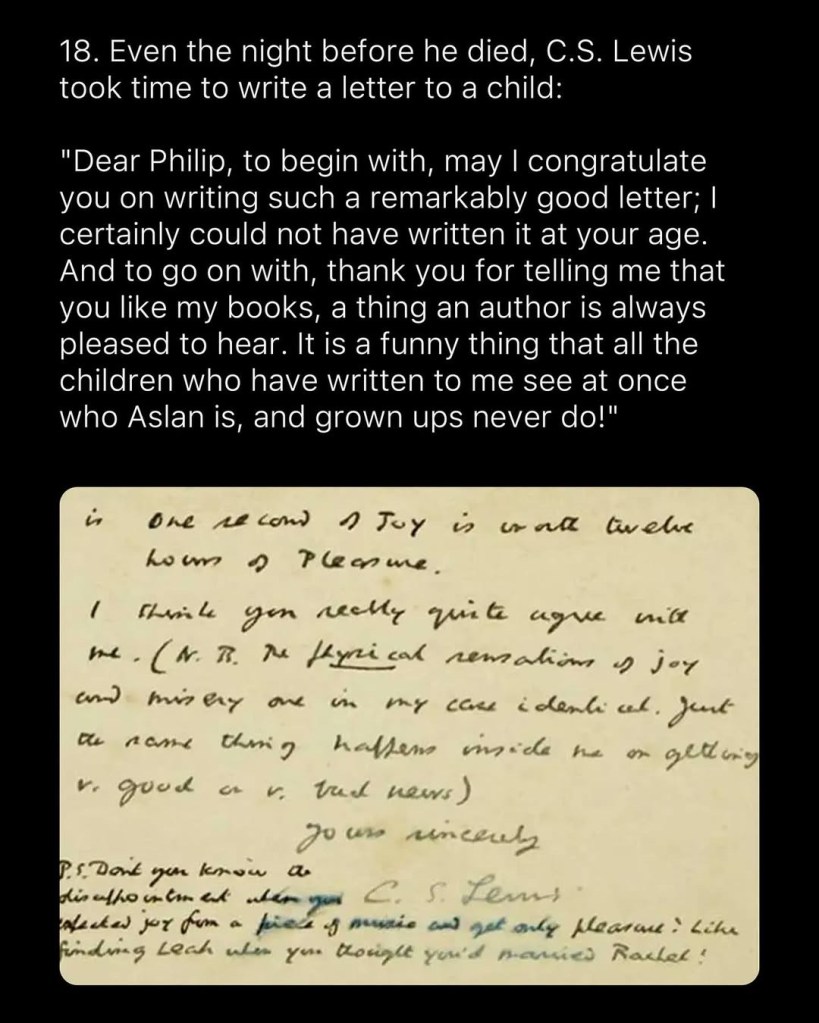 18. Even the night before he died, C.S. Lewis
took time to write a letter to a child:
"Dear Philip, to begin with, may I congratulate
you on writing such a remarkably good letter; I
certainly could not have written it at your age.
And to go on with, thank you for telling me that
you like my books, a thing an author is always
pleased to hear. It is a funny thing that all the
children who have written to me see at once
who Aslan is, and grown ups never do!"
is one second of Joy is worth twelve
hours of Pleasure.
I think you really quite agree with
me. (N.B. The physical sensations of joy
and misery are in my case identical. Just
the same thing happens inside me on getting
v. good or v. bad news)
yours sincerely
P.S. Don't you know the
disappointment when you C. S. Lewis
expected joy from a piece of music and get only pleasure? Like
finding Leah when you thought you'd married Rachel!